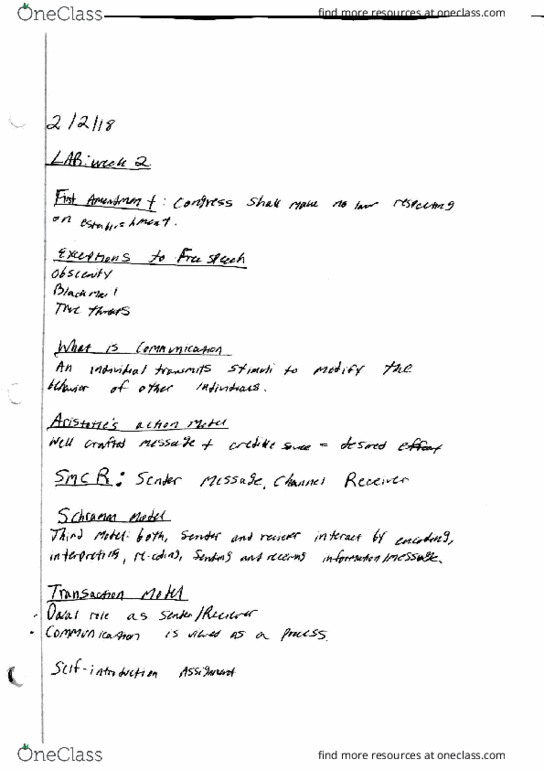 OneClass
find more resources at oneclass.com
2/2/18
LAB: week 2
First Amendment: Congress shall make no law respecting
on establishment.
Exceptions to Free speech
Obscenity
Blackmail
True threats
What is Communication
An individual transmits stimuli to modify the
behavior of other individuals.
Aristotle's action Model
Well crafted message + credible source = desired effect
SMCR: Sender Message, Channel Receiver
Schramm Model
Third Model: both, sender and reciever interact by encoding,
interpreting, re-coding, sending and recieving information/message.
Transaction Model
• Dual role as sender/Reciever
• Communication is viewed as a process.
Self-introduction Assignment
OneClass
find more resources at oneclass.com